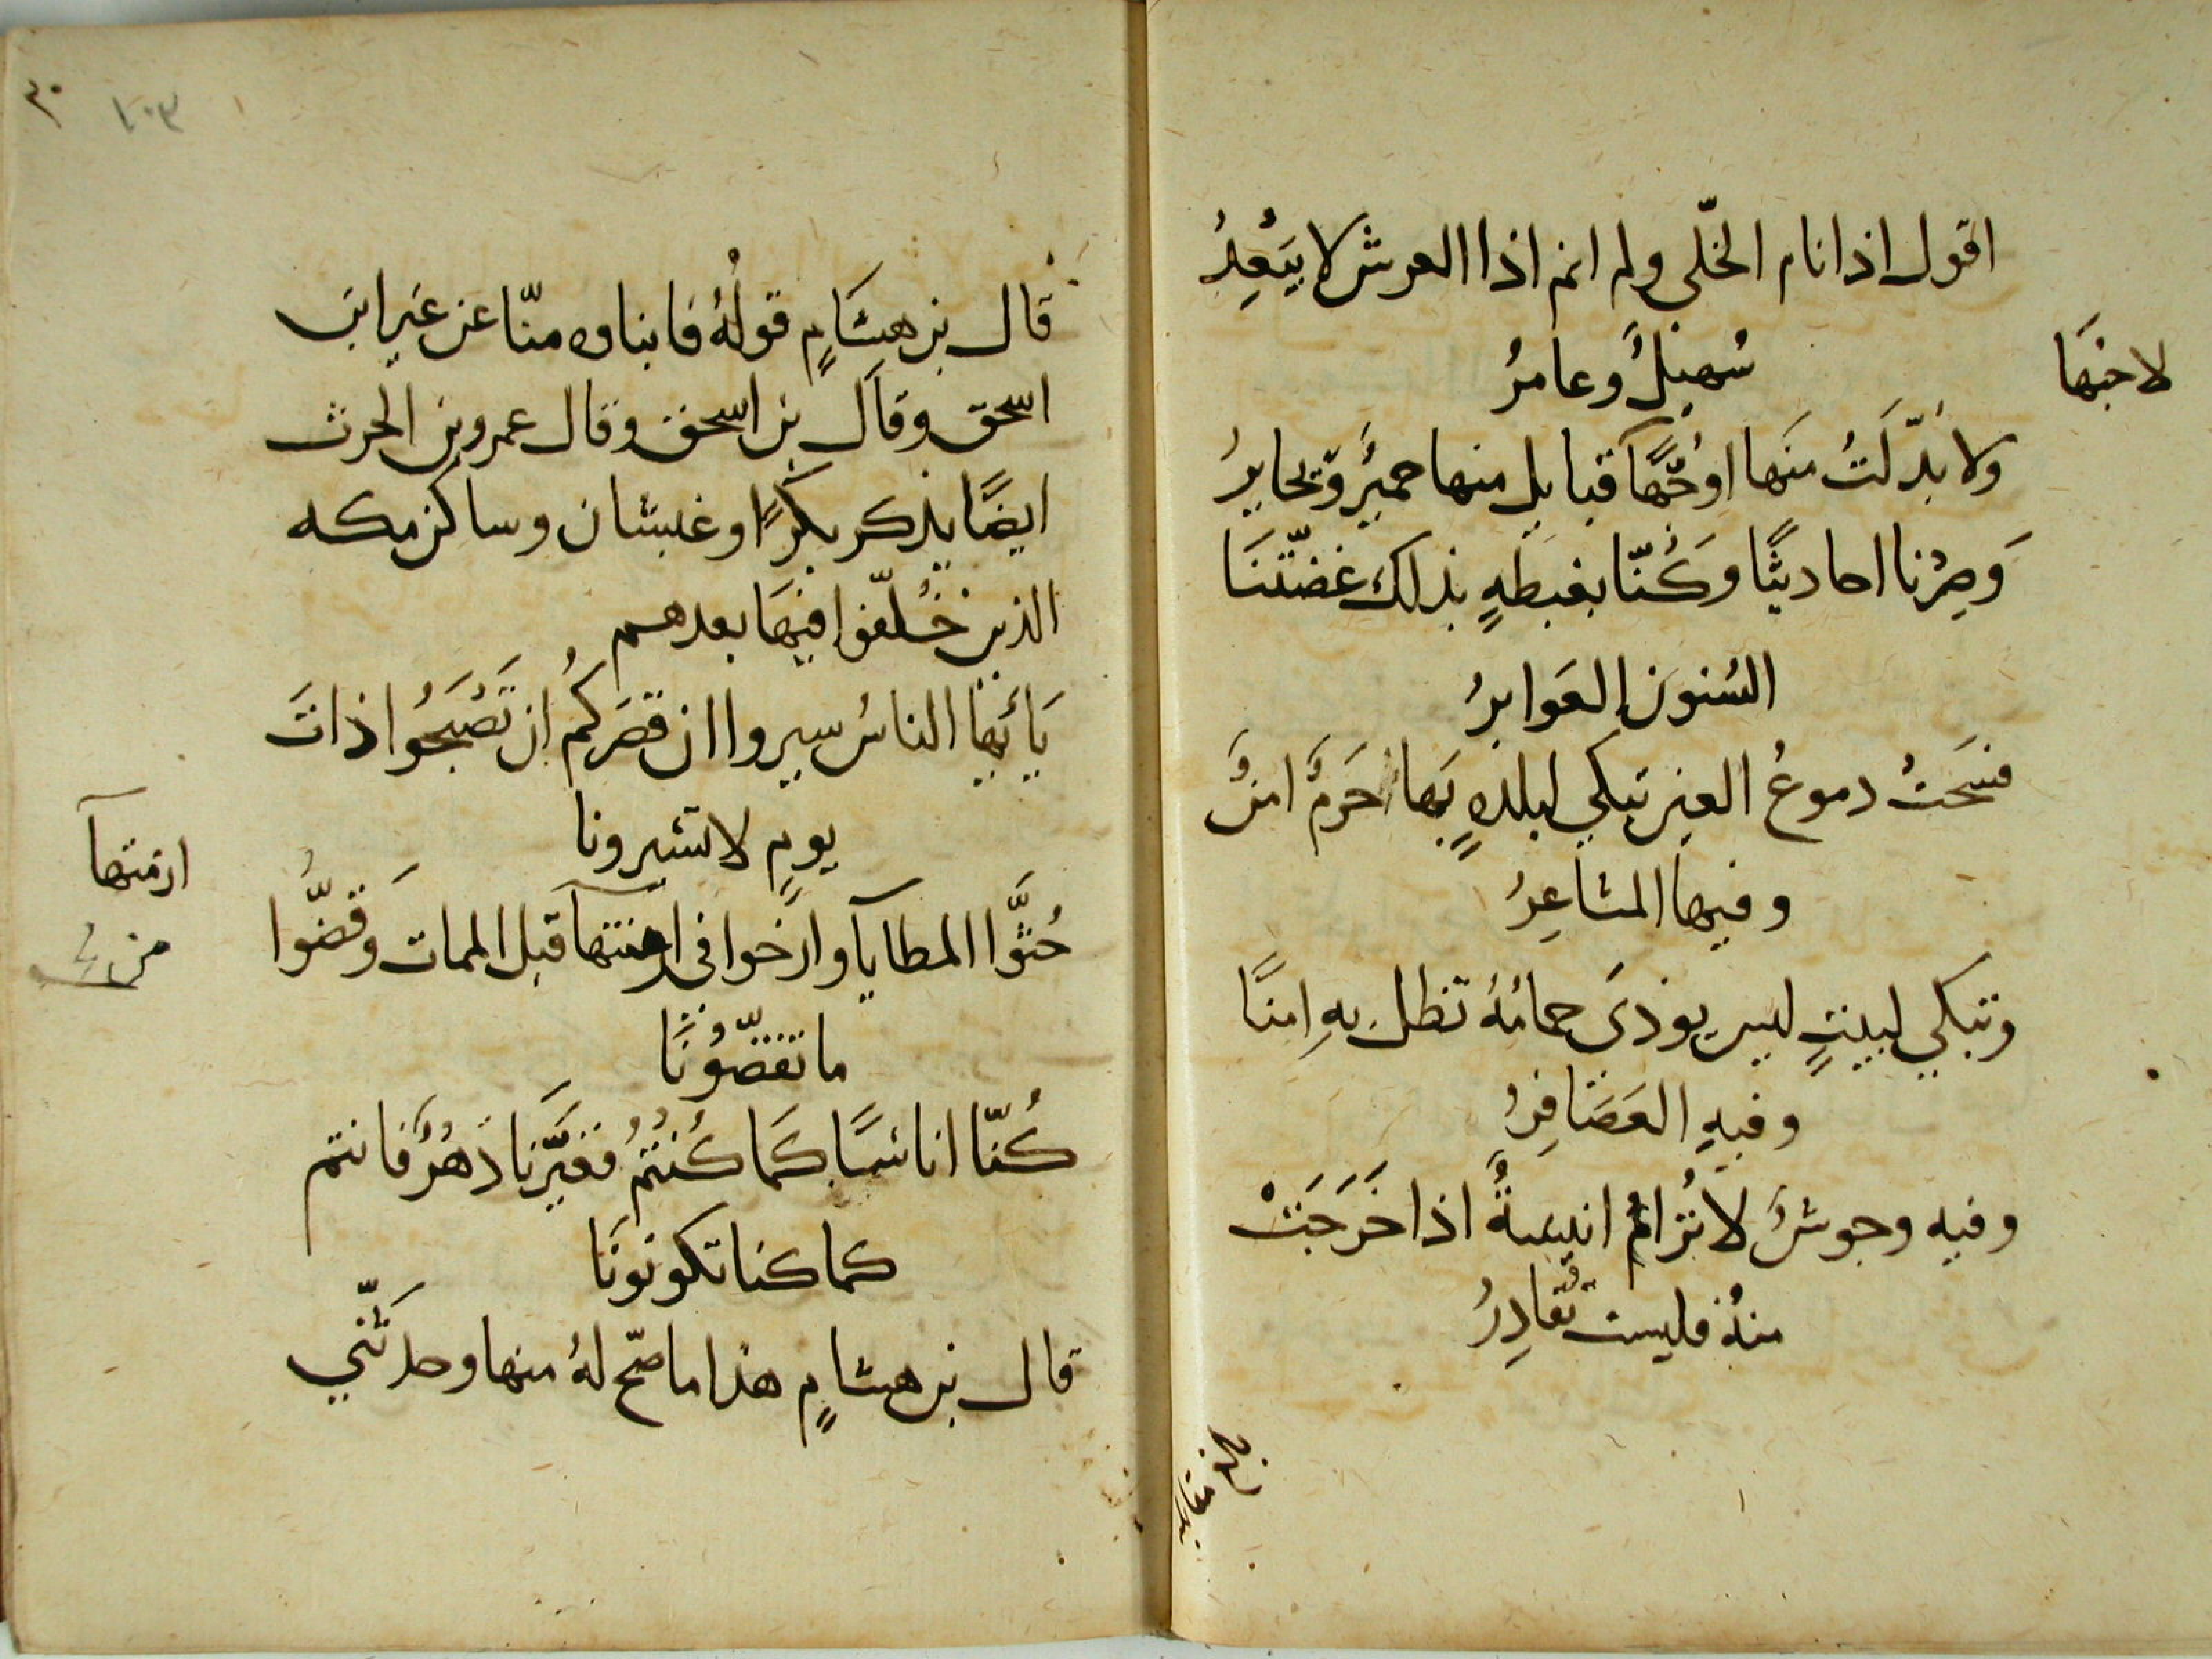 اقول اذا نام الخلّى ولم انم اذا العرش لا يَبْعِدُ
سُهيلٌ وعامرُ
لاحبّها
ولا بُدّلَتُ منَها اوجُهًّا قبايل منها حميرٌ ويحابرُ
وَصِرْنا احاديثًا وَكُنّا بغبطَهٍ بذلك غضّتنَا
السُنونَ العَوابرُ
فسَحَتْ دموعُ العين تبكي لبلدهٍ بهَا حَرَمٌ امنٌ
وفيها المشاعِرُ
وتبكي لبيتٍ ليس يوذىَ حمامُهُ تظل بهِ امنًا
وفيهِ العَصَافِرُ
وفيه وحوشٌ لا تُرَامُ انيسةٌ اذا خَرَجَتْ
منهُ فليست تُغادِرُ
قال بن هشَامٍ قولُهُ فابناوه منّا عن غير ابن
اسحق وقال بن اسحق وقال عمرو بن الحرث
ايضًا يذكر بكرًا وغبشان وساكن مكه
الذين خُلّفوا فيهَا بعدهم
يَا ئَيها الناسُ سيروا ان قصَركمُ ان تُصْبحُوا ذاتَ
يومٍ لا تسيرونا
حُثّوا المطايآ وارْخوا فى ازمتهآ قبل الممات وَقضّوا
ازمتهآ
ما تقضّونَا
كُنّا اناسًا كَمَا كُنْتمُ فغيّرَنا دَهْرٌ فانتم
كما كنا تكونونَا
قال بن هشامٍ هذا ما صّح لهُ منها وحدثَنّي